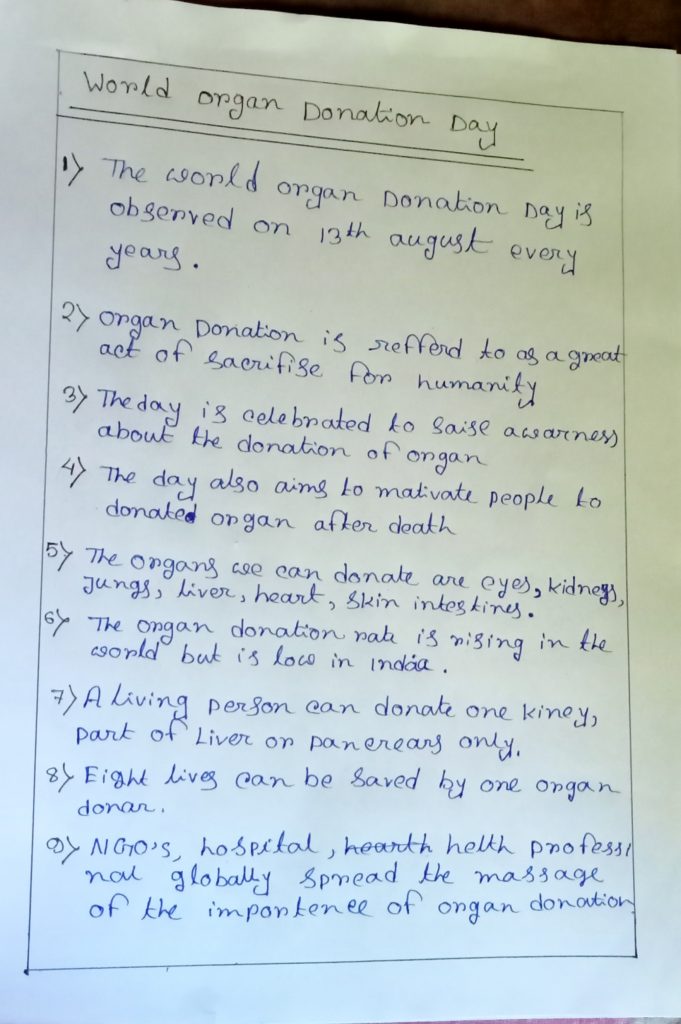 World organ Donation Day
1) The world organ Donation Day is
observed on 13th august every
years.
2) organ Donation is refferd to as a great
act of sacrifise for humanity
3) The day is celebrated to saise awarness
about the donation of organ
4) The day also aims to mativate people to
donated organ after death
5) The organs we can donate are eyes, kidneys,
Jungs, liver, heart, skin intestines.
6) The organ donation rate is rising in the
world but is low in India.
7) A living person can donate one kiney,
part of Liver or panerears only.
8) Eight lives can be saved by one organ
donar.
9) NGO's, hospital, hearth helth professi
nal globally spread the massage
of the importenee of organ donation